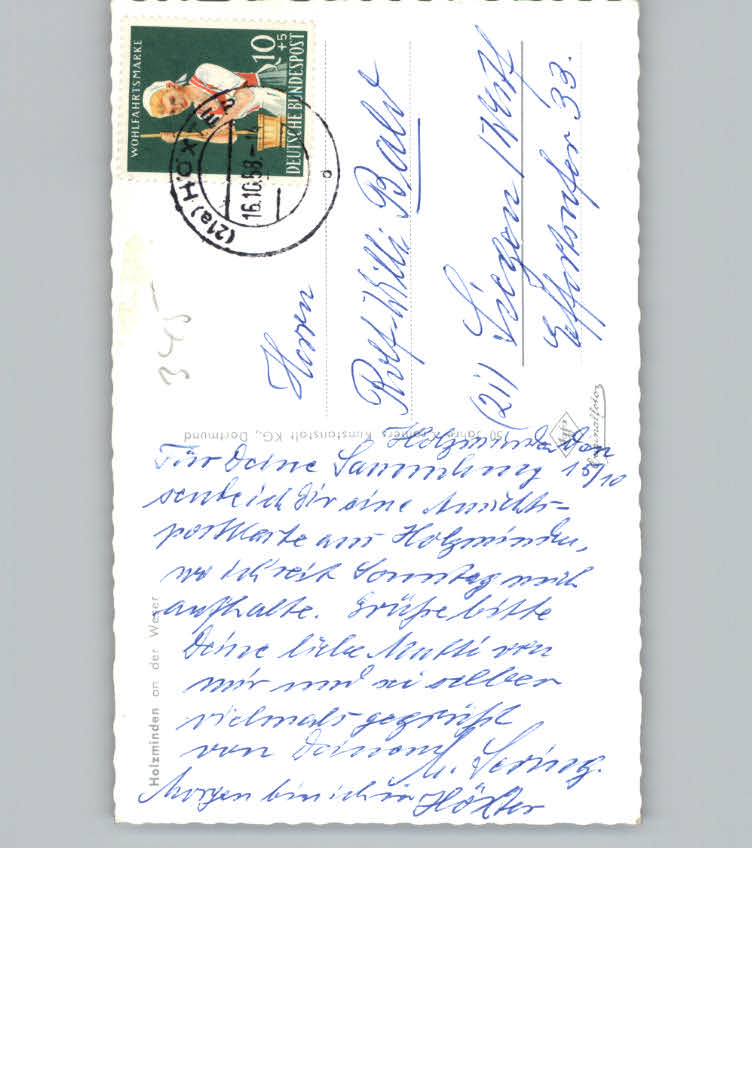 Holzminden Den
15/10
Für Deine Sammlung
sende ich Dir eine Ansichts=
postkarte aus Holzminden,
wo ich seit Sonntag mich
aufhalte. Grüße bitte
Deine liebe Mutti von
mir und sei selber
vielmals gegrüßt
von Deinem
Morgen bin ich in Höxter
Herrn
Rolf-Willi Bald
(21) Siegen /Westf
33.
WOHLFAHRTSMARKE
10
+5
DEUTSCHE BUNDESPOST
(21a) HÖXTER
16.10.58.
345
Holzminden an der Weser
50 Jahre Kunstanstalt KG., Dortmund
Originalfoto